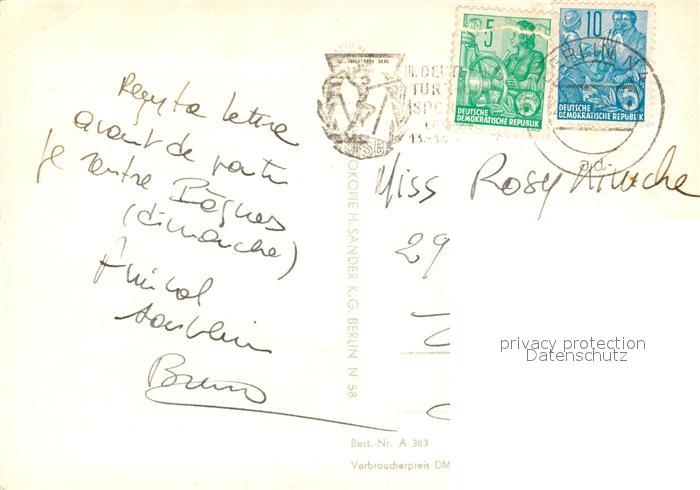 Reçu ta lettre
avant de partir
je rentre Pâques
(dimanche)
Amical
Bruno
5
DEUTSCHE
DEMOKRATISCHE REPUBLIK
10
DEUTSCHE
DEMOKRATISCHE REPUBLIK
III. DEUT
TUR
SPO
13.-1
BERLIN N
Miss Rosy
29
OKOPIE H. SANDER K.G. BERLIN N 58
privacy protection
Datenschutz
Best.-Nr. A 383
Verbraucherpreis DM